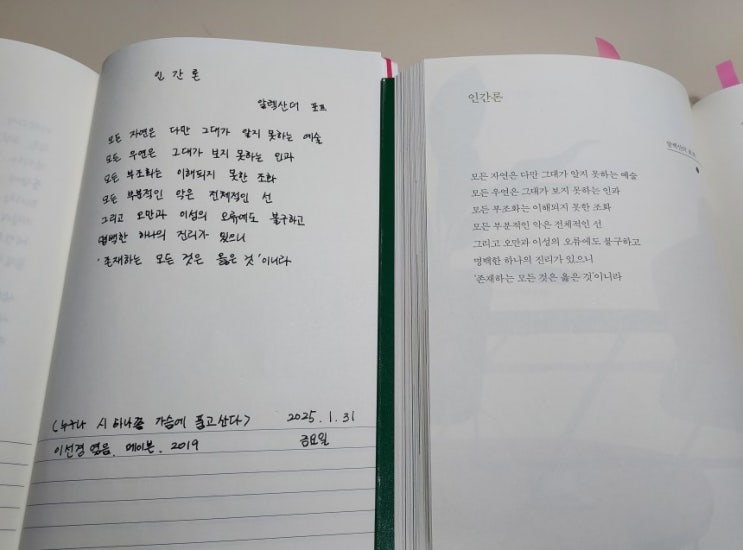 인간론
알렉산더 포프
모든 자연은 다만 그대가 알지 못하는 예술
모든 우연은 그대가 보지 못하는 인과
모든 부조화는 이해되지 못한 조화
모든 부분적인 악은 전체적인 선
그리고 오만과 이성의 오류에도 불구하고
명백한 하나의 진리가 있으니
'존재하는 모든 것은 옳은 것'이니라
<누구나 시 하나쯤 가슴에 품고산다> 2025.1.31
이선경 엮음, 메이븐, 2019 금요일
인간론
알렉산더 포프
모든 자연은 다만 그대가 알지 못하는 예술
모든 우연은 그대가 보지 못하는 인과
모든 부조화는 이해되지 못한 조화
모든 부분적인 악은 전체적인 선
그리고 오만과 이성의 오류에도 불구하고
명백한 하나의 진리가 있으니
'존재하는 모든 것은 옳은 것'이니라